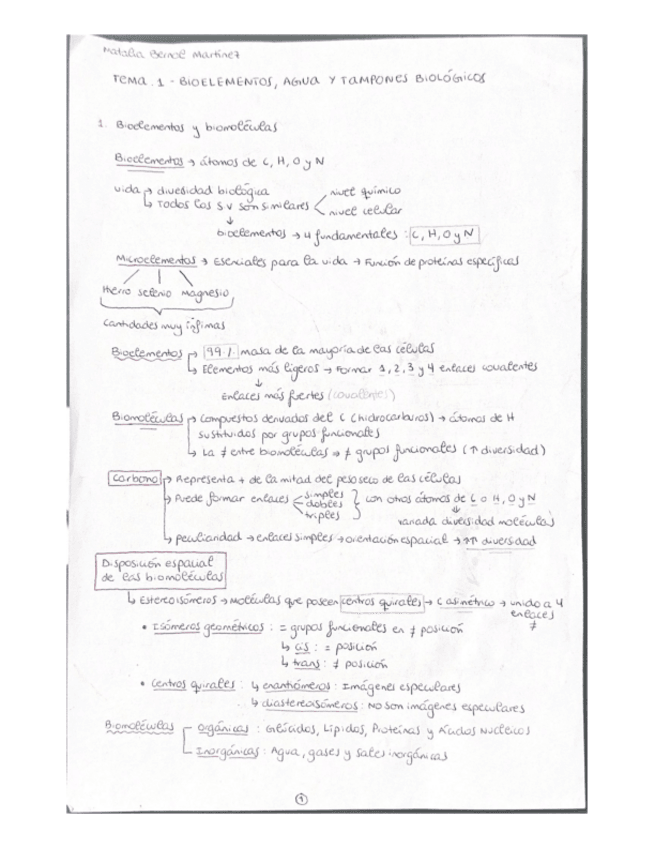 Natalia Bernal Martínez
TEMA.1 - BIOELEMENTOS, AGUA Y TAMPONES BIOLÓGICOS
1. Bioelementos y biomoléculas
Bioelementos → átomos de C, H, O y N
vida → diversidad biológica
↳ Todos los s.v son similares < nivel químico
nivel celular
↓
bioelementos → 4 fundamentales : C, H, O y N
Microelementos → Esenciales para la vida → Función de proteínas específicas
Hierro selenio magnesio
Cantidades muy ínfimas
Bioelementos → 99% masa de la mayoría de las células
↳ Elementos más ligeros → Formar 1, 2, 3 y 4 enlaces covalentes
↓
Enlaces más fuertes (covalentes)
Biomoléculas → Compuestos derivados del C (hidrocarburos) → átomos de H
sustituidos por grupos funcionales
↳ La ≠ entre biomoléculas → ≠ grupos funcionales (↑ diversidad)
Carbono → Representa + de la mitad del peso seco de las células
→ Puede formar enlaces < simples
dobles
triples } con otros átomos de C o H, O y N
↓
variada diversidad moléculas
↳ peculiaridad → enlaces simples → orientación espacial → ↑↑ diversidad
Disposición espacial
de las biomoléculas
↳ Estereoisómeros → Moléculas que poseen centros quirales → C asimétrico → unido a 4
enlaces
≠
• Isómeros geométricos : = grupos funcionales en ≠ posición
↳ cis : = posición
↳ trans : ≠ posición
• Centros quirales : ↳ enantiómeros : Imágenes especulares
↳ diastereoisómeros : No son imágenes especulares
Biomoléculas - Orgánicas : Glúcidos, Lípidos, Proteínas y Ácidos Nucleicos
- Inorgánicas : Agua, gases y sales inorgánicas
1